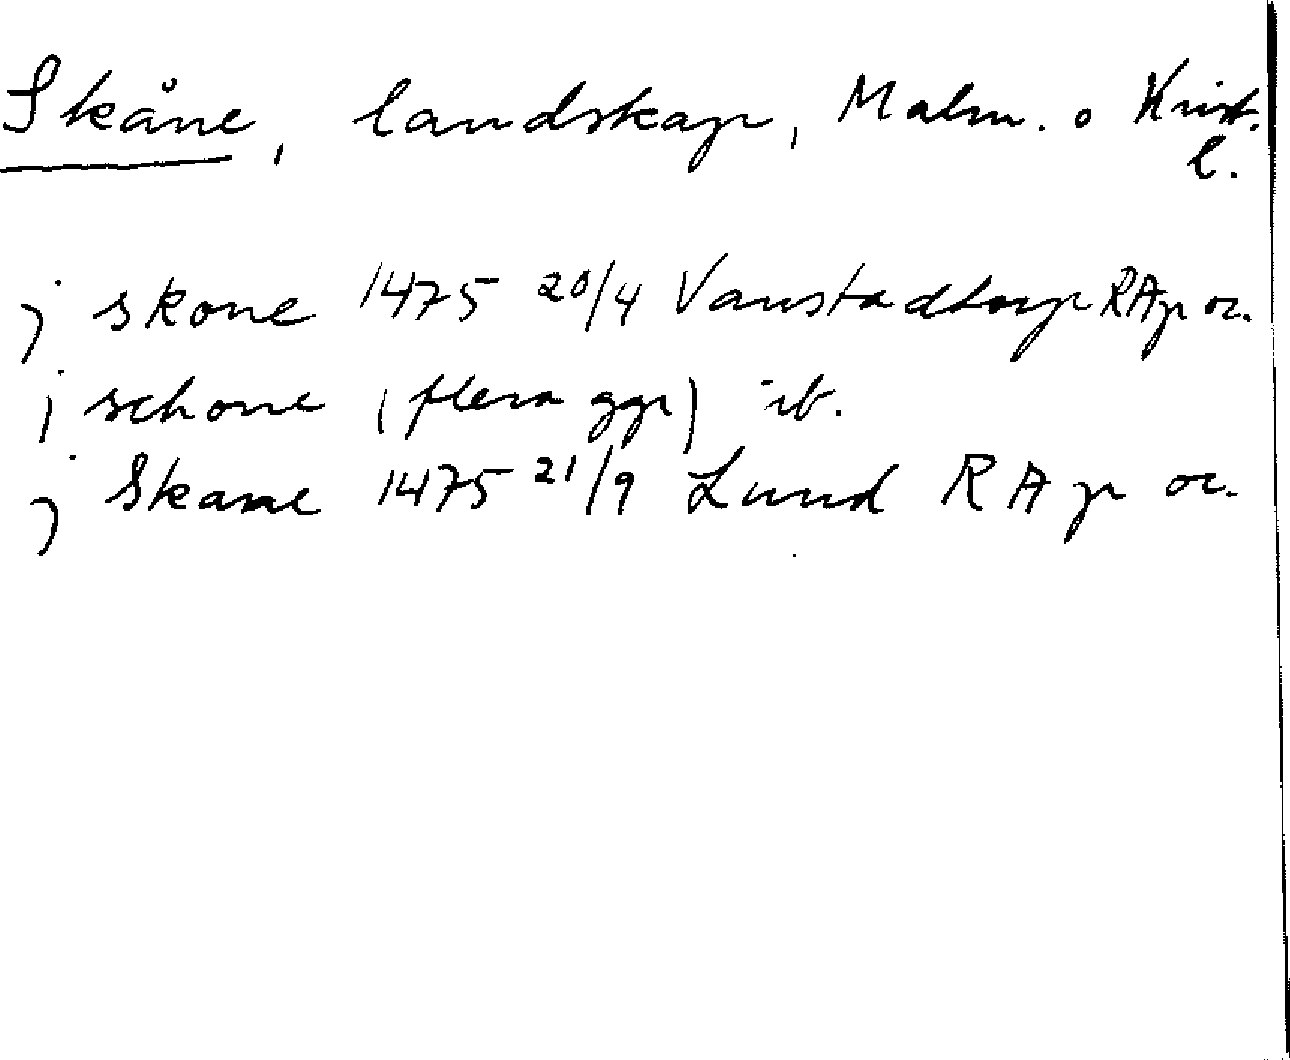 Skåne, landskap, Malm. o Krist.
l.
j skone 1475 20/4 Vanstadtorp RAp or.
j schone (flera ggr) ib.
j Skane 1475 21/9 Lund RAp or.